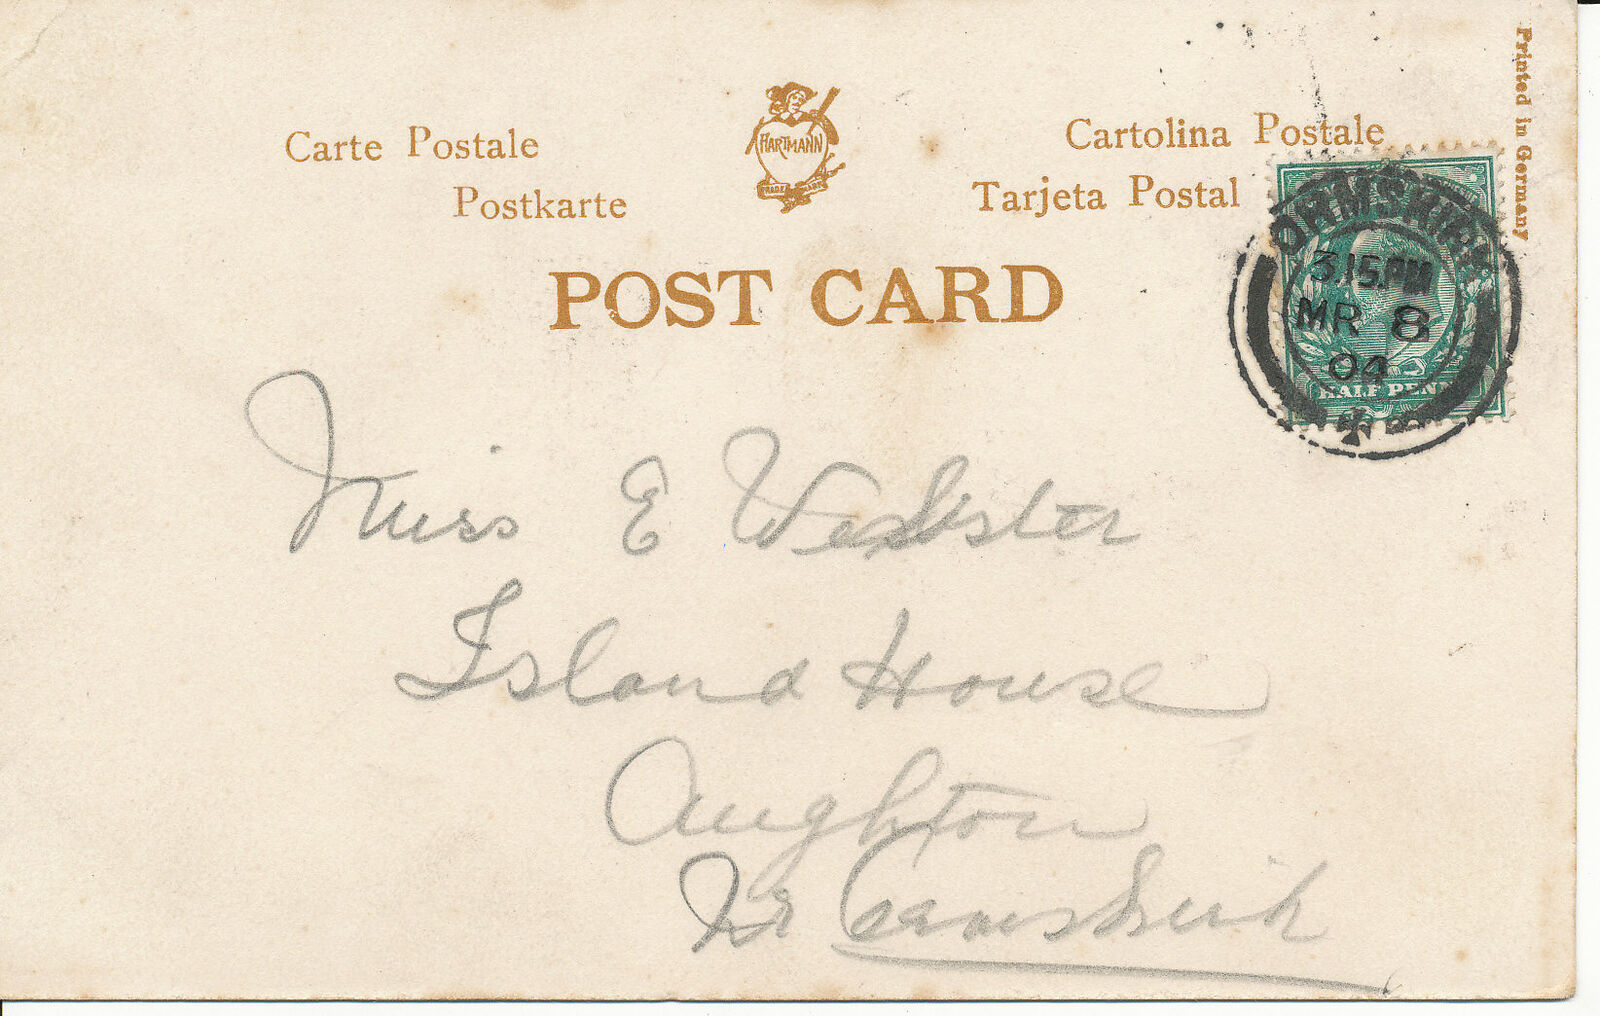 Carte Postale
Postkarte
HARTMANN
TRADE MARK
Cartolina Postale
Tarjeta Postal
Printed in Germany
POST CARD
ORMSKIRK
3.15.PM
MR 8
04
HALF PENNY
Miss E Webster
Island House
Aughton
Nr Ormskirk